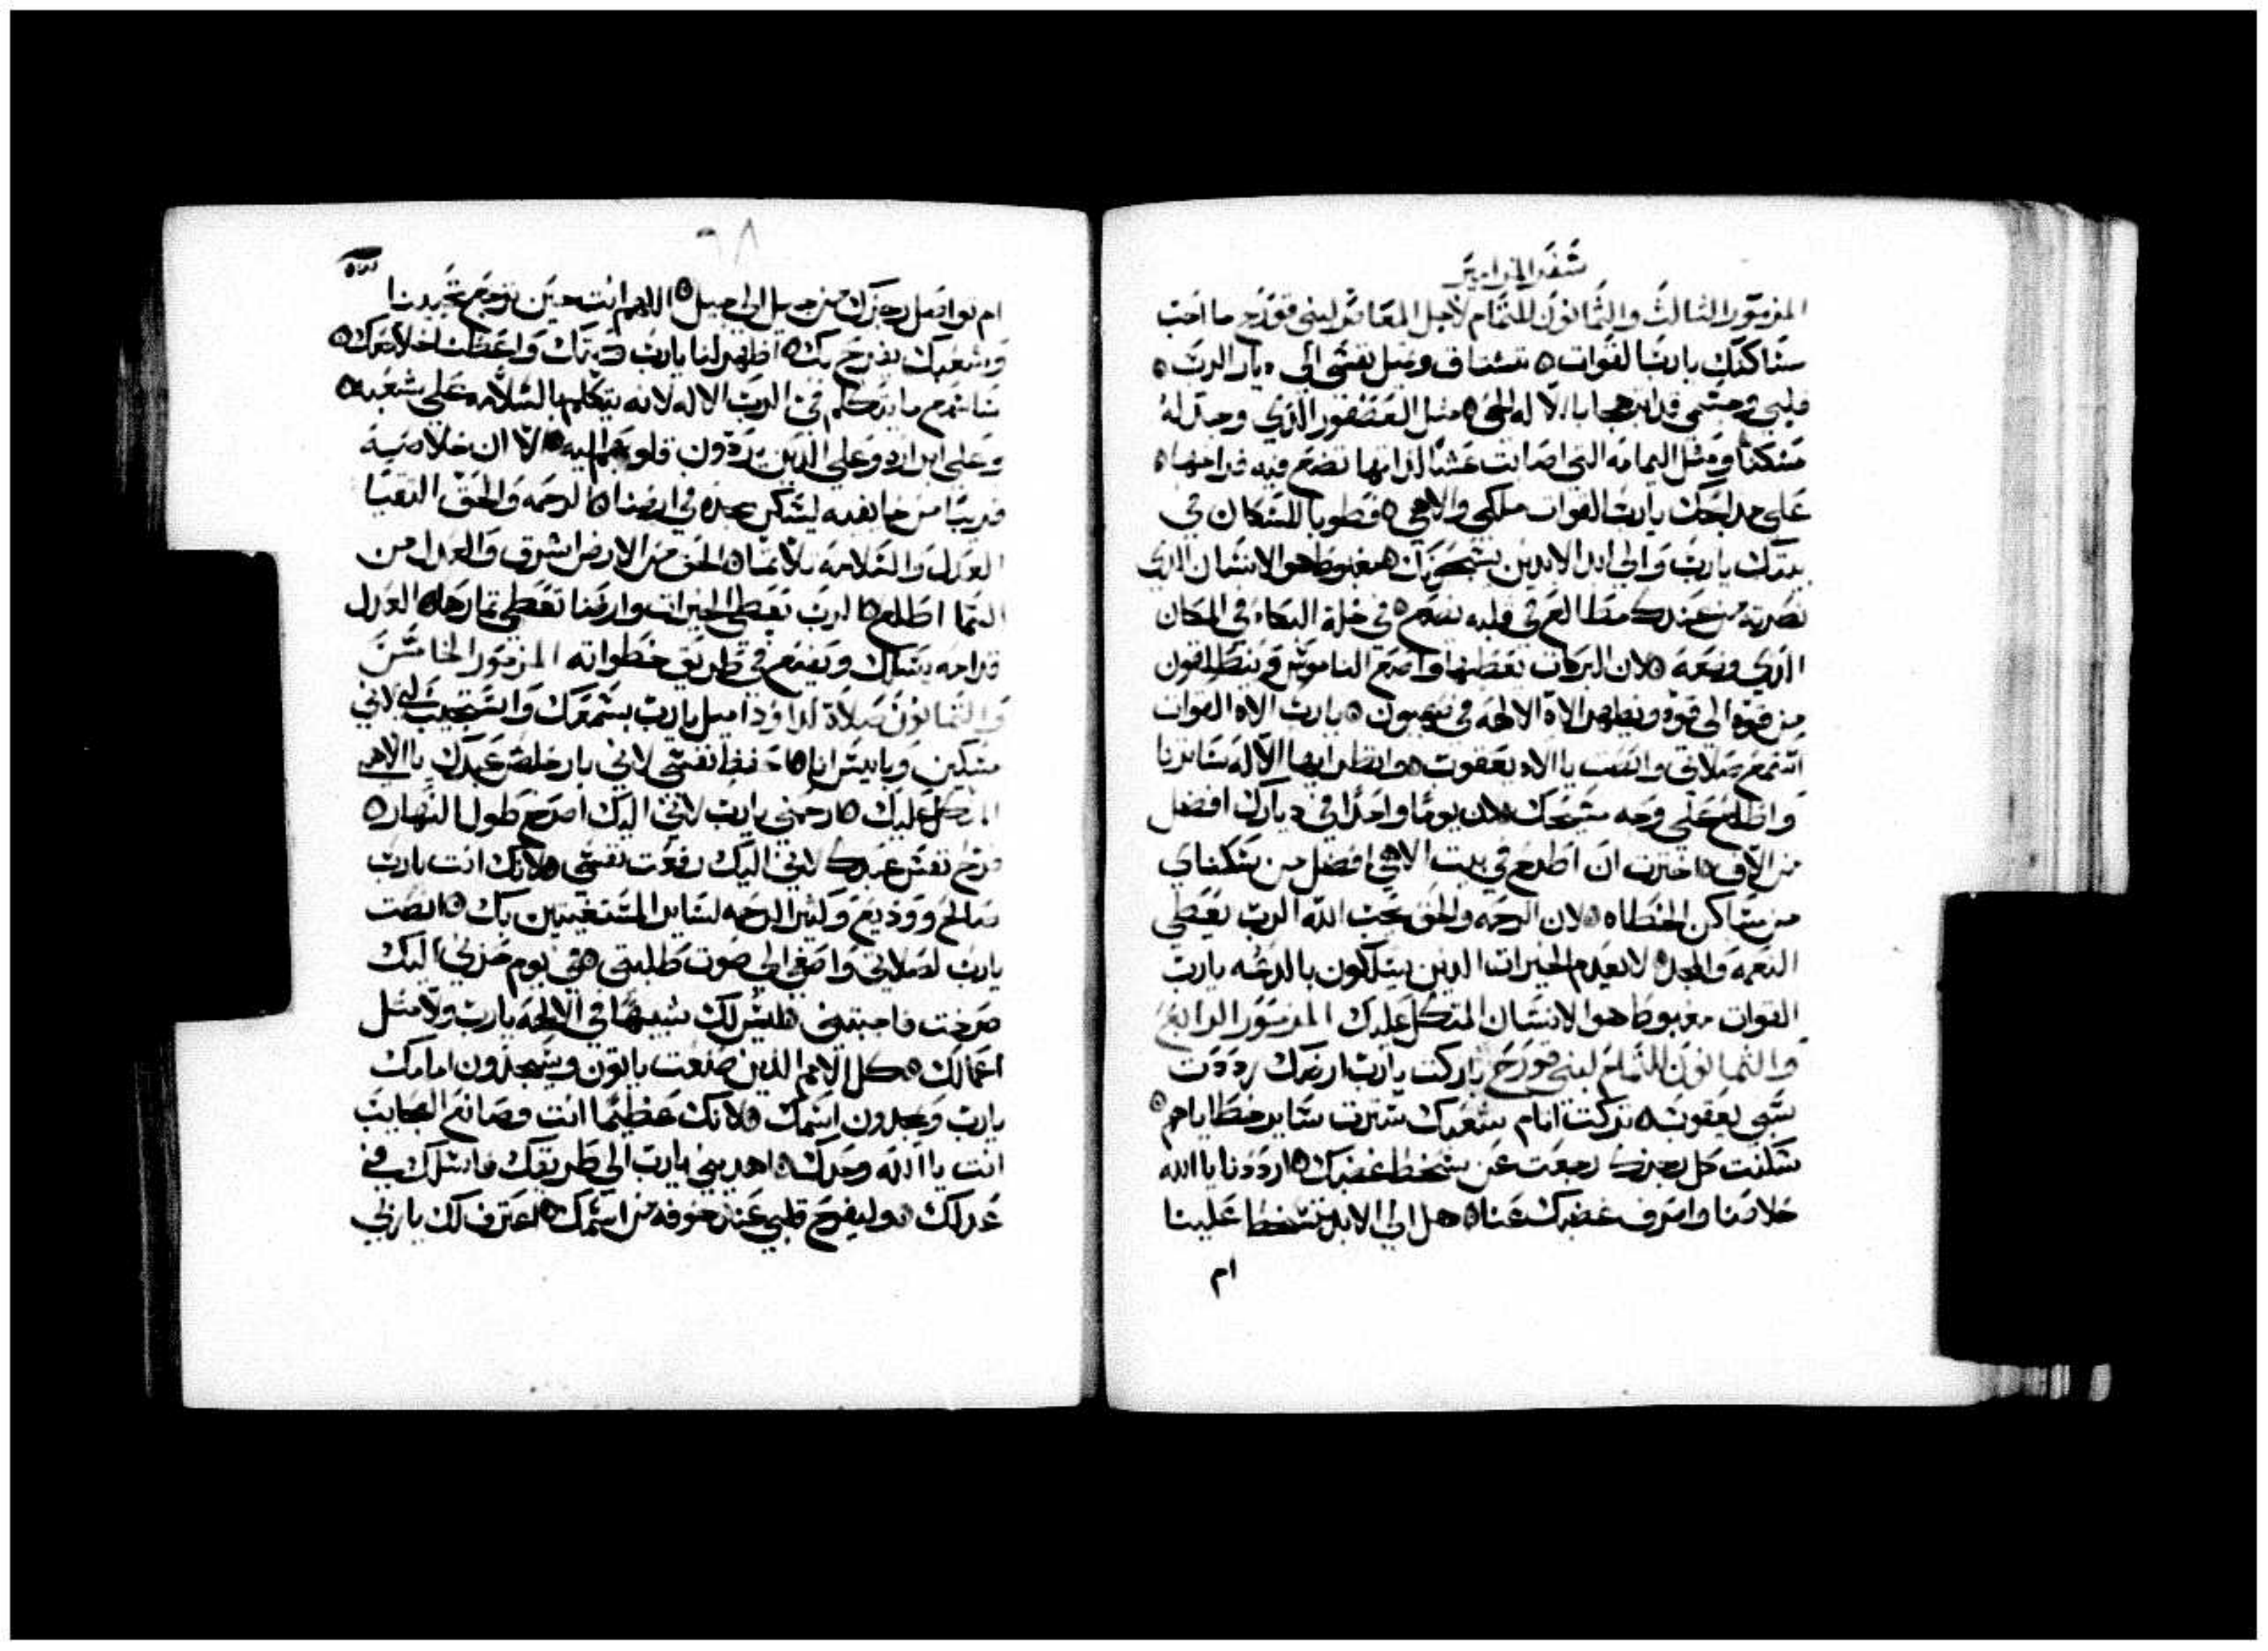 سفر المزامير
المزمور الثالث والثمانون للتمام لاجل المعاصر لبني قورح ما احب
مساكنك يا رب القوات ۞ تشتاق وتميل نفسي الى ديار الرب ۞
قلبي وجسمي قد ابتهجا بالاله الحي ۞ مثل العصفور الذي وجد له
مسكنا ومثل اليمامه التي اصابت عشا لذاتها تضع فيه فراخها ۞
على مدابحك يا رب القوات ملكي والاهي ۞ فطوبا للسكان في
بيتك يا رب والى ابد الابدين يسبحونك ۞ مغبوط هو الانسان الذي
نصرته من عندك مطالع في قلبه يضع ۞ في خلة البكاء في المكان
الذي وضعه ۞ لان البركات يعطيها واضع الناموس وينطلقون
من قوه الى قوه ويظهر الاه الالهه في صهيون ۞ يا رب الاه القوات
استمع صلاتي وانصت يا الاه يعقوب ۞ وانظر ايها الاله ساترنا
واطلع على وجه مسيحك ۞ لان يوما واحدا في ديارك افضل
من الاف ۞ اخترت ان اطرح في بيت الاهي افضل من سكناي
من مساكن الخطاه ۞ لان الرحمه والحق يحب الله الرب يعطي
النعمه والمجد ۞ لا يعدم الخيرات الذين يسلكون بالدعه يا رب
القوات مغبوط هو الانسان المتكل عليك المزمور الرابع
والثمانون للتمام لبني قورح باركت يا رب ارضك رددت
سبي يعقوب ۞ تركت اثام شعبك سترت ساير خطاياهم ۞
سكنت كل رجزك رجعت عن سخط غضبك ۞ ارددنا يا الله
خلاصنا واصرف غضبك عنا ۞ هل الى الابد تسخط علينا
ام
٦٨
ام تواصل رجزك من جيل الى جيل ۞ اللهم انت حين ترجع تحيينا
وشعبك يفرح بك ۞ اظهر لنا يا رب رحمتك واعطنا خلاصك ۞
سأسمع ما يتكلم في الرب الاله لانه يتكلم بالسلامه على شعبه ۞
وعلى ابراره وعلى الذين يردون قلوبهم اليه ۞ الا ان خلاصه
قريبا من خايفيه ليسكن مجده في ارضنا ۞ الرحمه والحق التقيا
العدل والسلامه تلاثما ۞ الحق من الارض اشرق والعدل من
السما اطلع ۞ الرب يعطي الخيرات وارضنا تعطي ثمارها ۞ العدل
قدامه يسلك ويضع في طريق خطواته المزمور الخامس
والثمانون صلاة لداوود اميل يا رب بسمعك واستجيب لي لاني
مسكين وبايس انا ۞ احفظ نفسي لاني بار خلص عبدك يا الاهي
المتكل عليك ۞ ارحمني يا رب لاني اليك اصرخ طول النهار ۞
فرح نفس عبدك لاني اليك رفعت نفسي ۞ لانك انت يا رب
صالح ووديع وكثير الرحمه لساير المستغيثين بك ۞ انصت
يا رب لصلاتي واصغي الى صوت طلبتي ۞ في يوم حزني اليك
صرخت فاجبتني ۞ ليس لك شبيها في الالهه يا رب ولا مثل
اعمالك ۞ كل الامم الذين صنعت ياتون ويسجدون امامك
يا رب ويمجدون اسمك ۞ لانك عظيما انت وصانع العجايب
انت يا الله وحدك ۞ اهديني يا رب الى طريقك فاسلك في
عدلك ۞ وليفرح قلبي عند خوفه من اسمك ۞ اعترف لك يا ربي